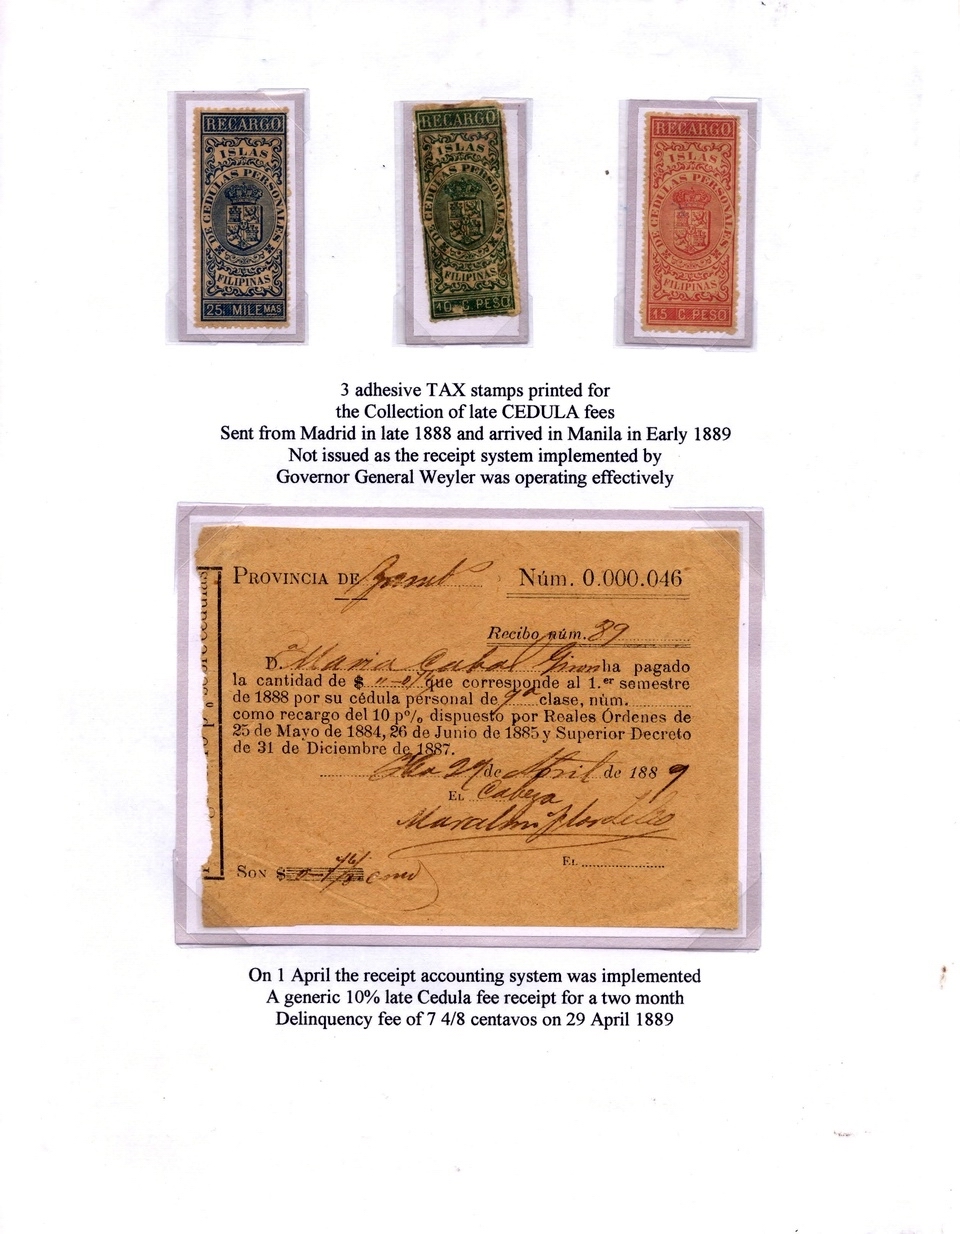 RECARGO
ISLAS
DE CEDULAS PERSONALES
FILIPINAS
25. MILEMAS
RECARGO
ISLAS
DE CEDULAS PERSONALES
FILIPINAS
10 C. PESO
RECARGO
ISLAS
DE CEDULAS PERSONALES
FILIPINAS
15 C. PESO
3 adhesive TAX stamps printed for
the Collection of late CEDULA fees
Sent from Madrid in late 1888 and arrived in Manila in Early 1889
Not issued as the receipt system implemented by
Governor General Weyler was operating effectively
PROVINCIA DE Núm. 0.000.046
Recibo núm. 39
D.ª Maria Cabal ha pagado
la cantidad de $ que corresponde al 1.er semestre
de 1888 por su cédula personal de 9ª clase, núm.
como recargo del 10 p% dispuesto por Reales Órdenes de
25 de Mayo de 1884, 26 de Junio de 1885 y Superior Decreto
de 31 de Diciembre de 1887.
29 de Abril de 1889
EL Cabeza
EL
SON $
On 1 April the receipt accounting system was implemented
A generic 10% late Cedula fee receipt for a two month
Delinquency fee of 7 4/8 centavos on 29 April 1889